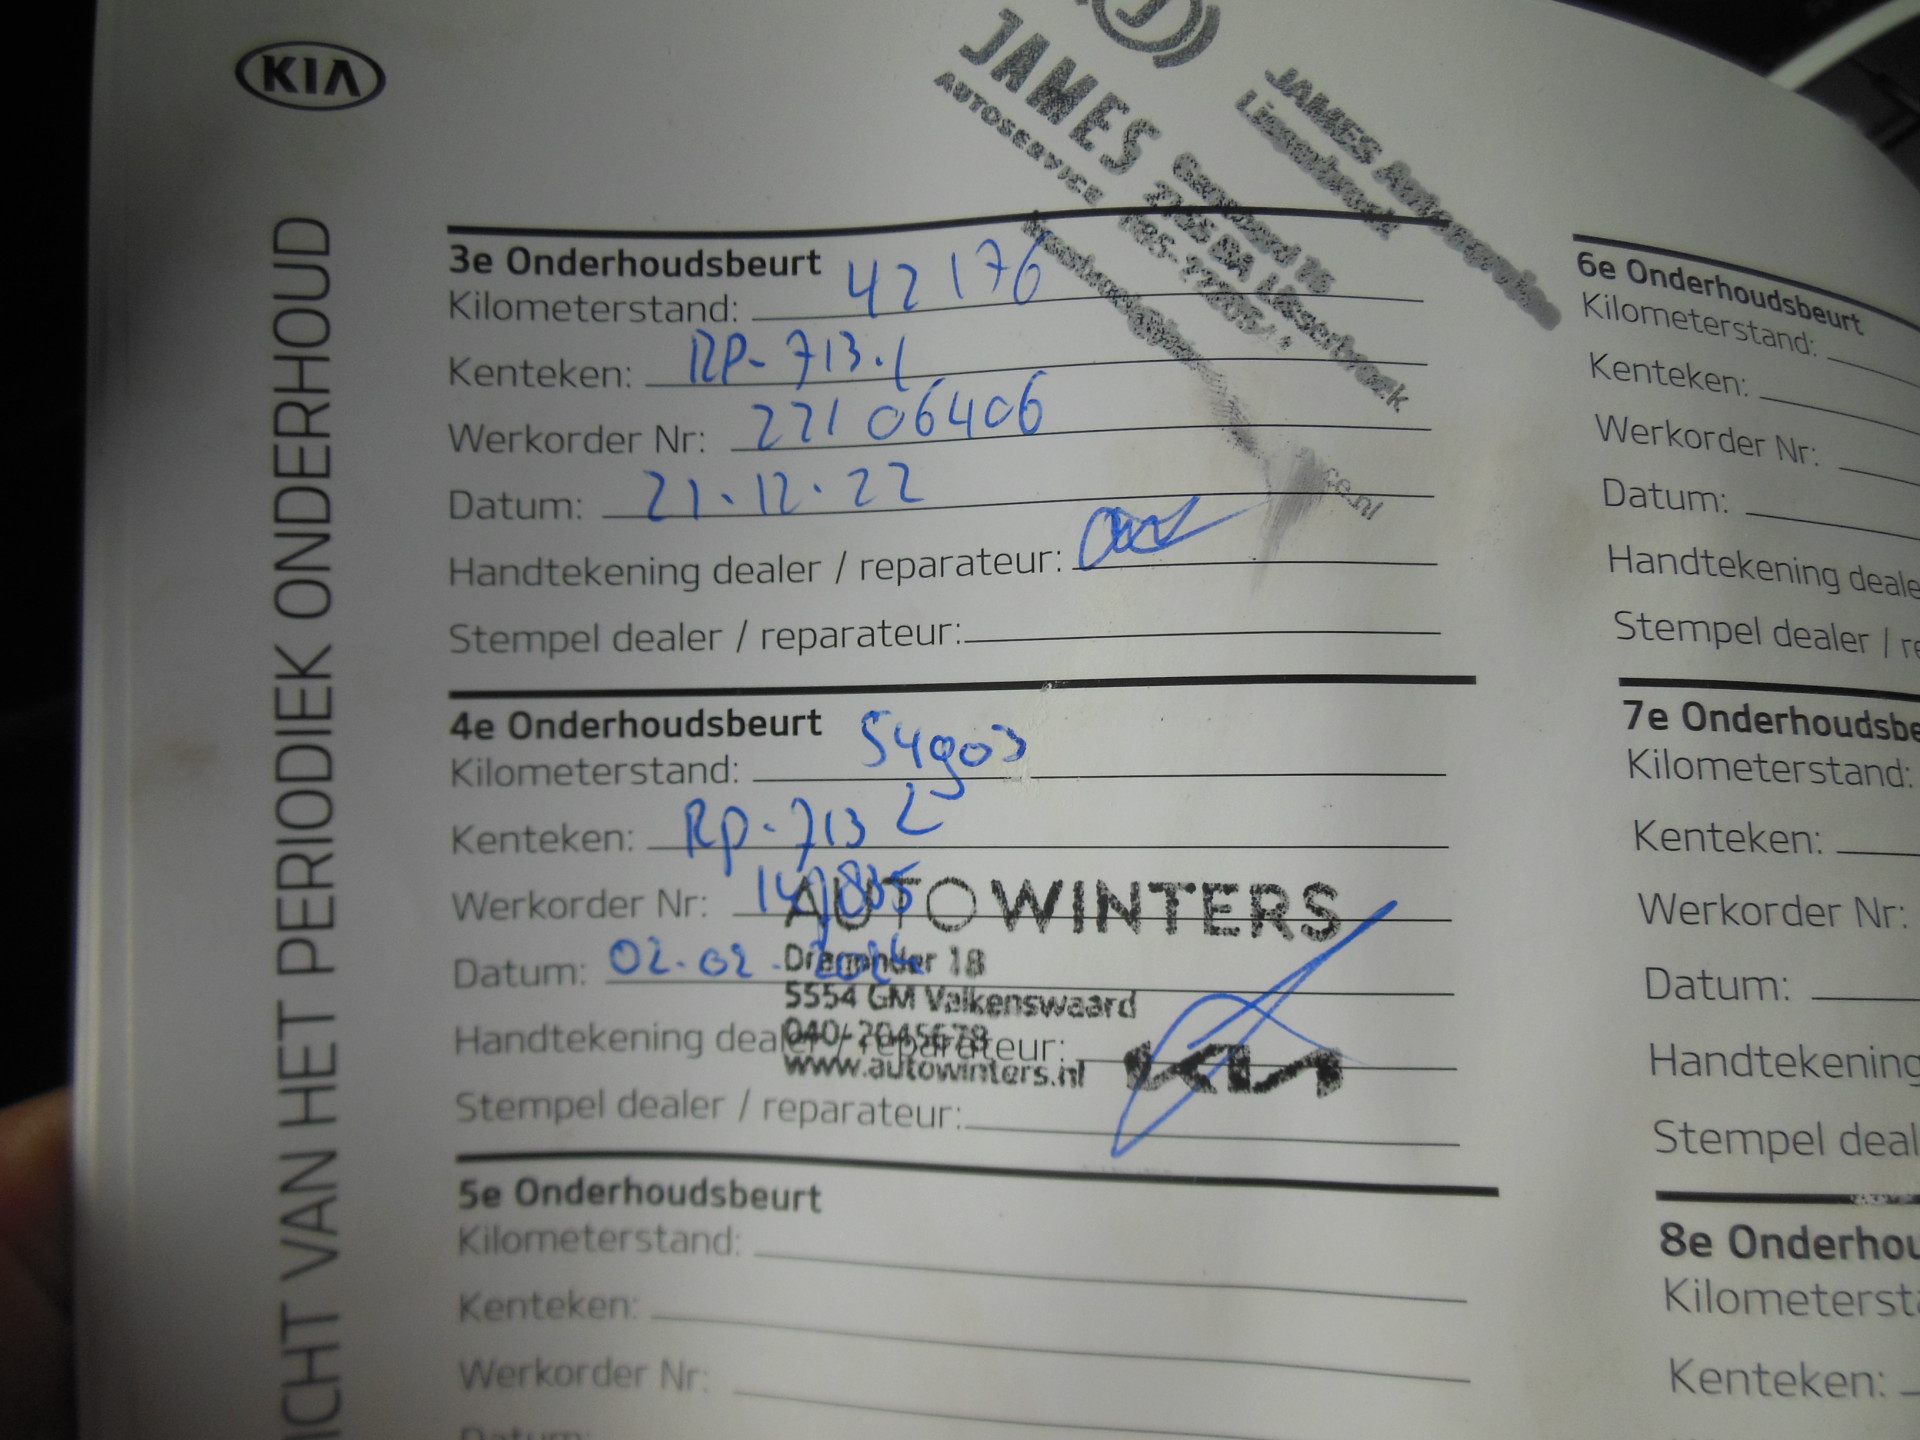 KIA
ICHT VAN HET PERIODIEK ONDERHOUD
JAMES
AUTOSERVICE
JAMES Autoservice
3e Onderhoudsbeurt
Kilometerstand: 42176
Kenteken: RP-713-L
Werkorder Nr: 22106406
Datum: 21-12-22
Handtekening dealer / reparateur:
Stempel dealer / reparateur:
4e Onderhoudsbeurt
Kilometerstand: 54903
Kenteken: RP-713 L
Werkorder Nr:
Datum: 02-02-
Handtekening dealer / reparateur:
Stempel dealer / reparateur:
AUTOWINTERS
18
5554 GM Valkenswaard
040-2045678
www.autowinters.nl
KIA
5e Onderhoudsbeurt
Kilometerstand:
Kenteken:
Werkorder Nr:
Datum:
6e Onderhoudsbeurt
Kilometerstand:
Kenteken:
Werkorder Nr:
Datum:
Handtekening deale
Stempel dealer / re
7e Onderhoudsbe
Kilometerstand:
Kenteken:
Werkorder Nr:
Datum:
Handtekening
Stempel deal
8e Onderhou
Kilometersta
Kenteken: